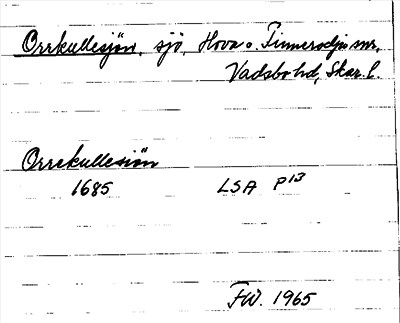 Orrkullesjön, sjö, Hova o. Finnerödja snr,
Vadsbo hd, Skar. l.
Orrekullesiön
1685 LSA P13
FW. 1965